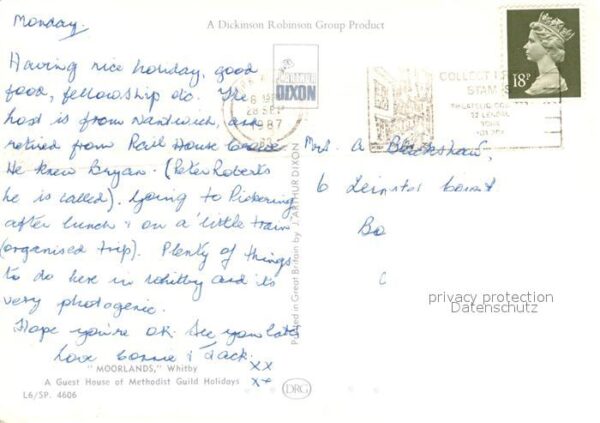 Monday.
A Dickinson Robinson Group Product
Having nice holiday, good
food, fellowship etc. The
host is from Nantwich, and
retired from Rail House Crewe
He knew Bryan. (Peter Roberts
he is called). Going to Pickering
after lunch & on a little train
(organised trip). Plenty of things
to do here in Whitby and it's
very photogenic.
Hope you're ok. See you later
Love Connie & Jack.
xx
x+
"MOORLANDS," Whitby
A Guest House of Methodist Guild Holidays
L6/SP. 4606
Printed in Great Britain by J. ARTHUR DIXON
J ARTHUR
DIXON
28 SEP
1987
COLLECT
STAMPS
PHILATELIC
22 LENDAL
YORK
18P
Mrs. A Blackshaw,
6 Leinster Court
Bo
C
DRG
privacy protection
Datenschutz